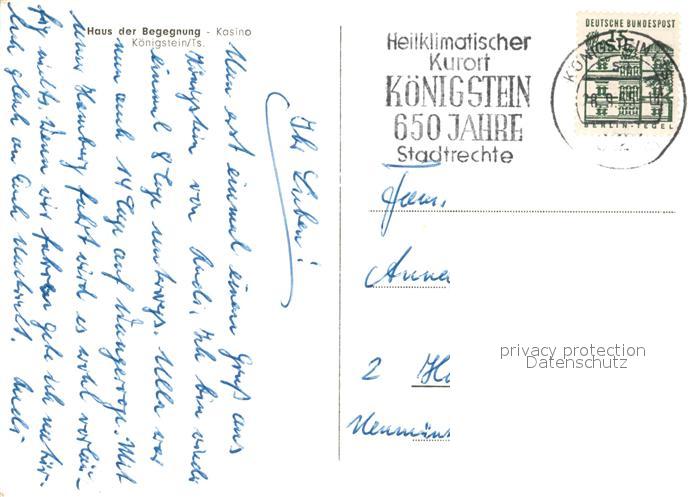 Haus der Begegnung - Kasino
Königstein/Ts.
Ihr Lieben!
Nun erst einmal einen Gruß aus
Königstein von Rudi. Ich bin wieder
einmal 8 Tage unterwegs. Ulla war
nun auch 14 Tage auf Wangerooge. Mit
unser Hamburg fahrt wird es wohl vorläu-
fig nichts. Wenn wir fahren gebe ich natür-
lich gleich an Euch Nachricht. Rudi
Heilklimatischer
Kurort
KÖNIGSTEIN
650 JAHRE
Stadtrechte
DEUTSCHE BUNDESPOST
15
KÖNIGSTEIN
BERLIN-TEGEL
Fam.
Anna
2 H
Neumüns
privacy protection
Datenschutz